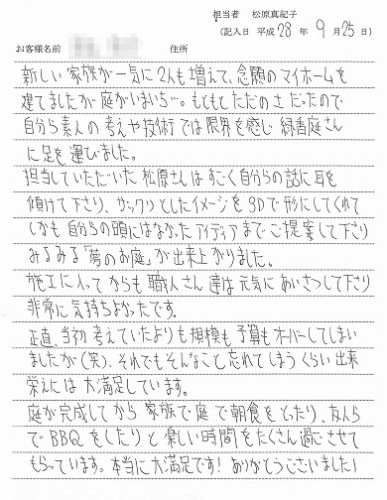 担当者 松原真紀子
(記入日 平成 28 年 9 月 25 日)
お客様名前 住所
新しい家族が一気に2人も増えて、念願のマイホームを
建てましたが庭がいまいち…。もともとただの さ だったので
自分ら素人の考えや技術では限界を感じ 緑香庭さん
に足を運びました。
担当していただいた松原さんはすごく自分らの話に耳を
傾けて下さり、ザックリとしたイメージを3Dで形にしてくれて
しかも自分らの頭にはなかったアイディアまでご提案して下さり
みるみる「夢のお庭」が出来上がりました。
施工に入ってからも職人さん達は元気にあいさつして下さり
非常に気持ちよかったです。
正直、当初考えていたよりも規模も予算もオーバーしてしまい
ましたが(笑)、それでもそんなこと忘れてしまうくらい出来
栄えには大満足しています。
庭が完成してから家族で庭で朝食をとったり、友人ら
でBBQをしたりと楽しい時間をたくさん過ごさせて
もらっています。本当に大満足です!ありがとうございました!